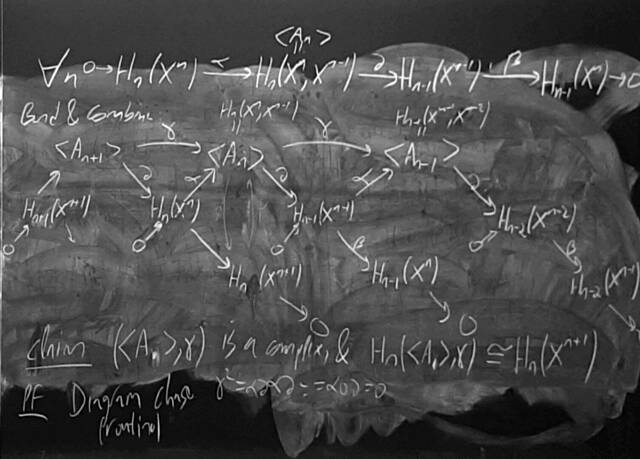 <A_n>
∀n 0 → H_n(X^n) →^α H_n(X^n, X^{n-1}) →^∂ H_{n-1}(X^{n-1}) →^β H_{n-1}(X^n) → 0
Bend & Combine H_n(X^n, X^{n-1}) H_{n-1}(X^{n-1}, X^{n-2})
<A_{n+1}> →^γ <A_n> →^γ <A_{n-1}>
∂ α ∂ α ∂
H_{n+1}(X^{n+1}) H_n(X^n) H_{n-1}(X^{n-1}) H_{n-2}(X^{n-2})
0 0 0 β 0 β
H_n(X^{n+1}) H_{n-1}(X^n) H_{n-2}(X^{n-1})
0 0
Claim (<A_n>, γ) is a complex, & H_n(<A.>, γ) ≅ H_n(X^{n+1})
PF Diagram chase γ² = α∂α∂ = α0∂ = 0